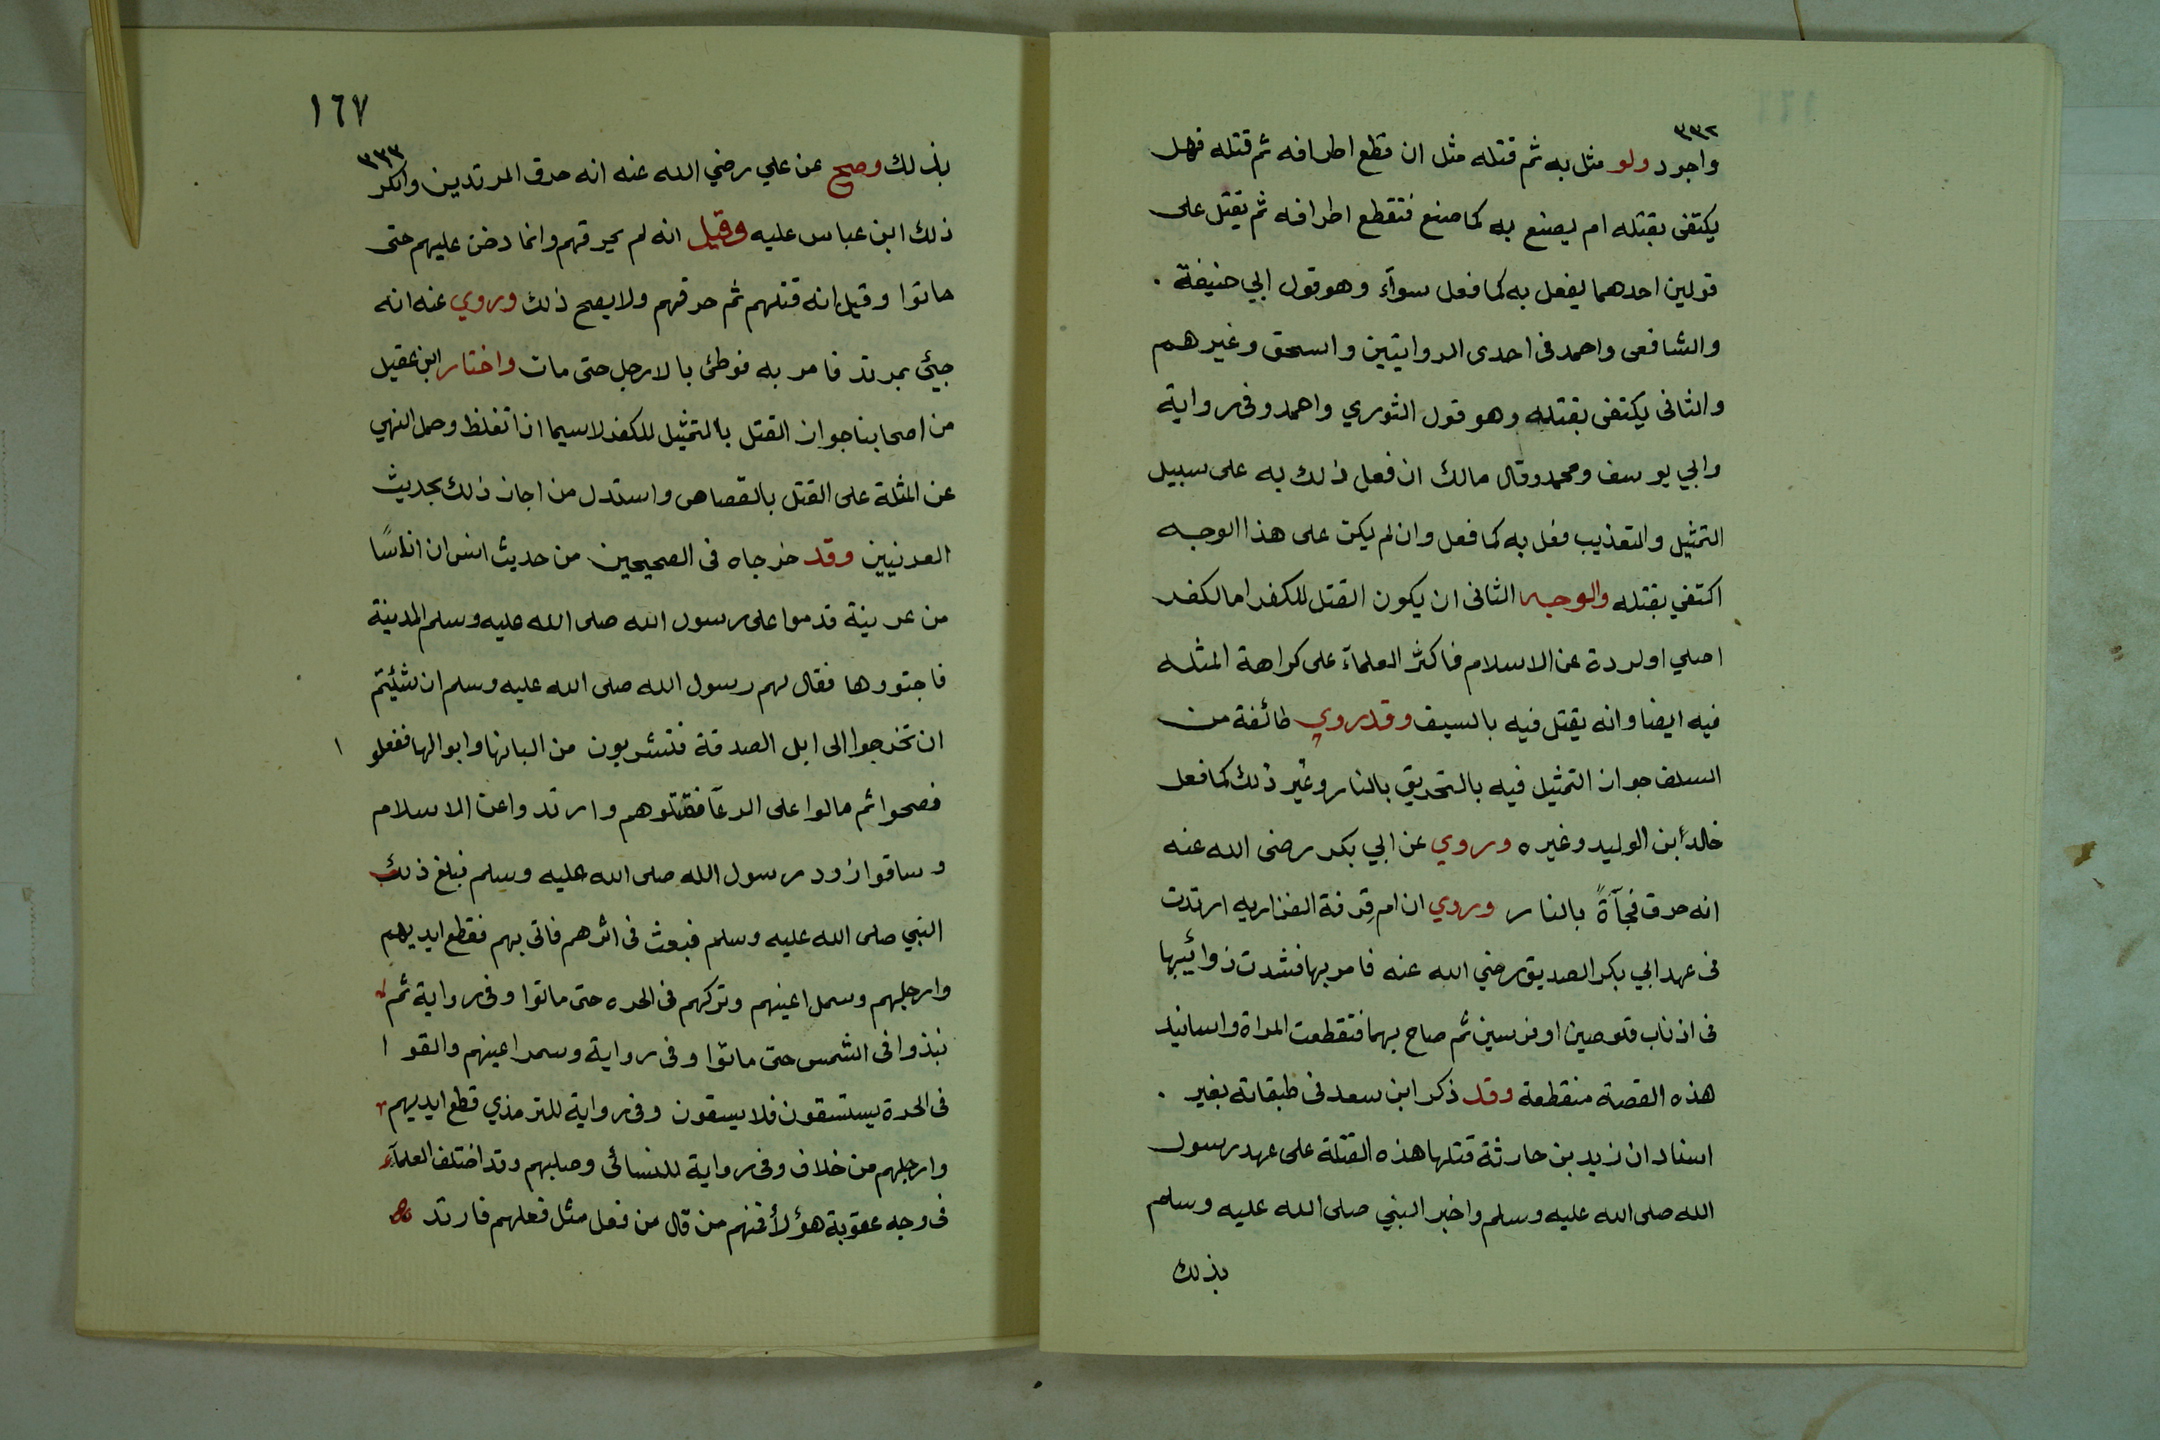 ٣٣٢
واجود ولو مثل به ثم قتله مثل ان قطع اطرافه ثم قتله فهل
يكتفى بقتله ام يصنع به كما صنع فتقطع اطرافه ثم يقتل على
قولين احدهما يفعل به كما فعل سوآء وهو قول ابي حنيفة .
والشافعى واحمد فى احدى الروايتين واسحق وغيرهم
والثانى يكتفى بقتله وهو قول الثوري واحمد وفى رواية
وابي يوسف ومحمد وقال مالك ان فعل ذلك به على سبيل
التمثيل والتعذيب فعل به كما فعل وان لم يكن على هذا الوجه
اكتفي بقتله والوجه الثانى ان يكون القتل للكفر اما لكفر
اصلي او لردة عن الاسلام فاكثر العلمآء على كراهة المثله
فيه ايضا وانه يقتل فيه بالسيف وقد روي طائفة من
السلف جواز التمثيل فيه بالتحريق بالنار وغير ذلك كما فعل
خالد ابن الوليد وغيره وروي عن ابي بكر رضى الله عنه
انه حرق فجآءةً بالنار وروي ان ام قِرفة الفزاريه ارتدت
فى عهد ابي بكر الصديق رضي الله عنه فامر بها فشدت ذوائبها
فى اذناب قلوصين او فرسين ثم صاح بهما فتقطعت المراة واسانيد
هذه القصة منقطعة وقد ذكر ابن سعد فى طبقاته بغير .
اسناد ان زيد بن حارثة قتلها هذه القتلة على عهد رسول
الله صلى الله عليه وسلم واخبر النبي صلى الله عليه وسلم
بذلك
١٦٧
٣٣٣
بذلك وصح عن علي رضي الله عنه انه حرق المرتدين وانكر
ذلك ابن عباس عليه وقيل انه لم يحرقهم وانما دخن عليهم حتى
ماتوا وقيل انه قتلهم ثم حرقهم ولا يصح ذلك وروي عنه انه
جيئ بمرتد فامر به فوطئ بالارجل حتى مات واختار ابن عقيل
من اصحابنا جواز القتل بالتمثيل للكفر لاسيما اذا تغلظ وحمل النهي
عن المثلة على القتل بالقصاص واستدل من اجاز ذلك بحديث
العرنيين وقد خرجاه فى الصحيحين من حديث انس ان اناسًا
من عرينة قدموا على رسول الله صلى الله عليه وسلم المدينة
فاجتووها فقال لهم رسول الله صلى الله عليه وسلم ان شئيتم
ان تخرجوا الى ابل الصدقة فتشربون من البانها وابوالها ففعلو ا
فصحوا ثم مالوا على الرعآ فقتلوهم وارتدوا عن الاسلام
وساقوا ذود رسول الله صلى الله عليه وسلم فبلغ ذلك
النبي صلى الله عليه وسلم فبعث فى اثرهم فاتى بهم فقطع ايديهم
وارجلهم وسمل اعينهم وتركهم فى الحره حتى ماتوا وفى رواية ثم
نبذوا فى الشمس حتى ماتوا وفى رواية وسمر اعينهم والقو ا
فى الحرة يستسقون فلا يسقون وفى رواية للترمذي قطع ايديهم
وارجلهم من خلاف وفى رواية للنسائى وصلبهم وقد اختلف العلمآء
فى وجه عقوبة هؤلأ فمنهم من قال من فعل مثل فعلهم فارتد